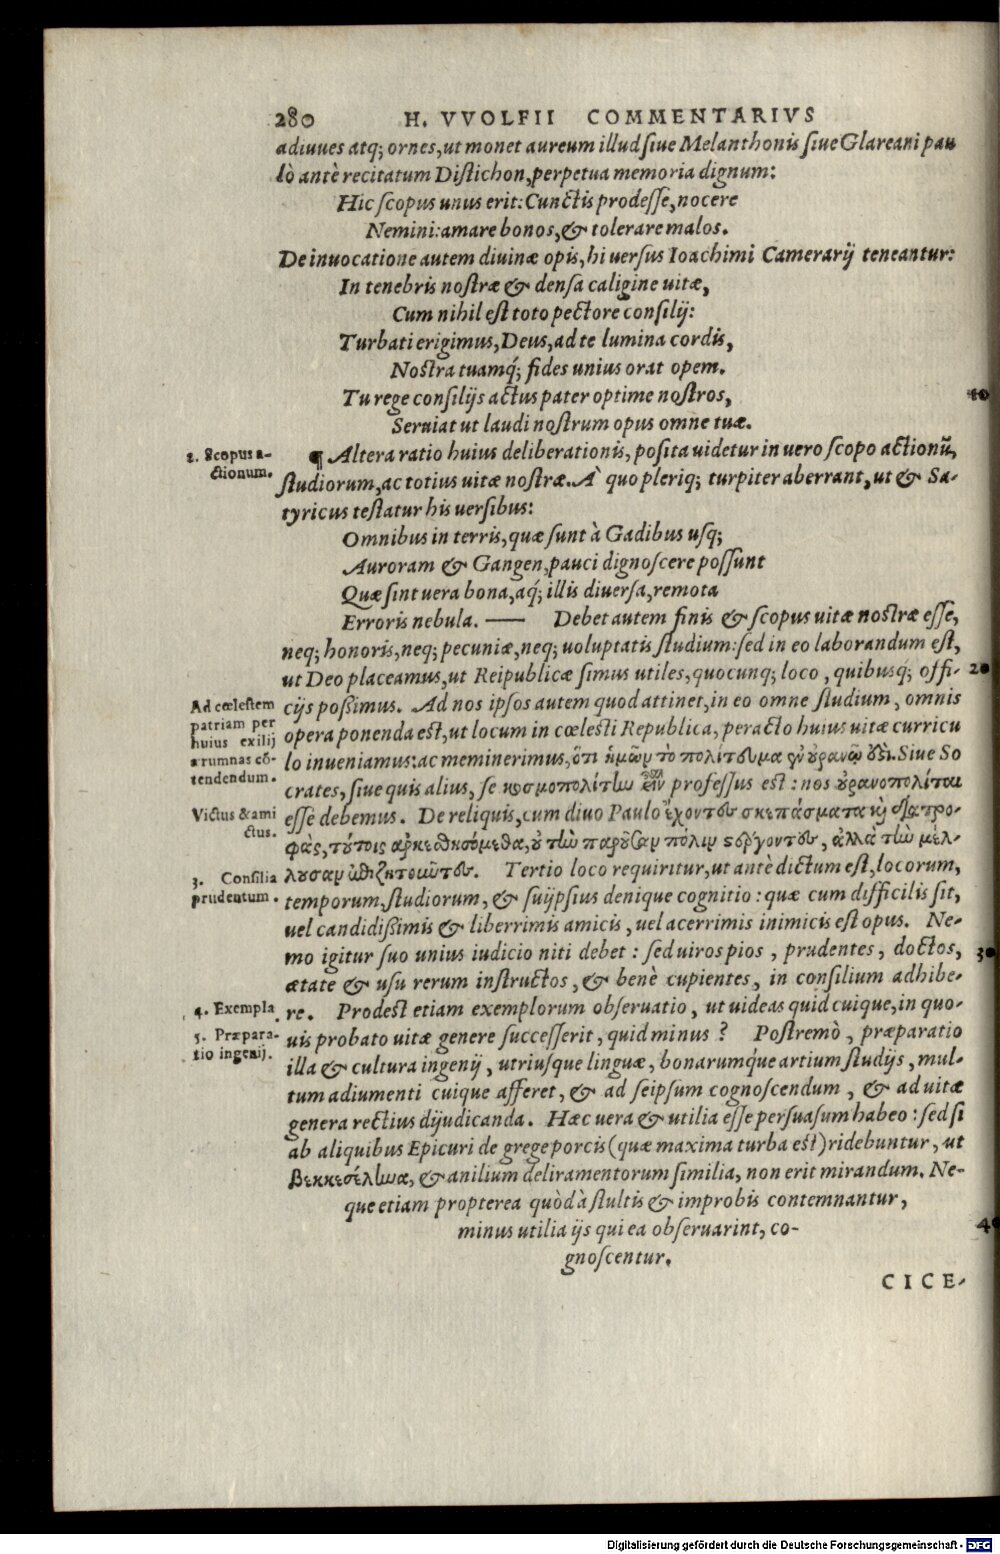 280 H. VVOLFII COMMENTARIVS
adiuues atq; ornes, ut monet aureum illud siue Melanthonis siue Glareani pau
lò antè recitatum Distichon, perpetua memoria dignum:
Hic scopus unus erit: Cunctis prodesse, nocere
Nemini: amare bonos, & tolerare malos.
De inuocatione autem diuinæ opis, hi uersus Ioachimi Camerarij teneantur:
In tenebris nostræ & densa caligine uitæ,
Cum nihil est toto pectore consilij:
Turbati erigimus, Deus, ad te lumina cordis,
Nostra tuamq́; fides unius orat opem.
Tu rege consilijs actus pater optime nostros,
10
Seruiat ut laudi nostrum opus omne tuæ.
2. Scopus a-
ctionum.
¶ Altera ratio huius deliberationis, posita uidetur in uero scopo actionũ,
studiorum, ac totius uitæ nostræ. À quo pleriq; turpiter aberrant, ut & Sa-
tyricus testatur his uersibus:
Omnibus in terris, quæ sunt à Gadibus usq;
Auroram & Gangen, pauci dignoscere possunt
Quæ sint uera bona, aq́; illis diuersa, remota
Erroris nebula. — Debet autem finis & scopus uitæ nostræ esse,
neq; honoris, neq; pecuniæ, neq; uoluptatis studium: sed in eo laborandum est,
ut Deo placeamus, ut Reipublicæ simus utiles, quocunq; loco, quibusq́; offi-
20
Ad cœlestem
patriam per
huius exilij
ærumnas cõ-
tendendum.
cijs poßimus. Ad nos ipsos autem quod attinet, in eo omne studium, omnis
opera ponenda est, ut locum in cœlesti Republica, peracto huius uitæ curricu
lo inueniamus: ac meminerimus, ὅτι ἡμῶν τὸ πολίτευμα ἐν οὐρανῷ ὅτι. Siue So
crates, siue quis alius, se κοσμοπολίτην professus est: nos οὐρανοπολίται
Victus & ami
ctus.
esse debemus. De reliquis, cum diuo Paulo ἔχοντες σκεπάσματα καὶ διατρο-
φὰς, τούτοις ἀρκεσθησόμεθα, οὐ τὴν παροῦσαν πόλιν στέργοντες, ἀλλὰ τὴν μέλ-
3. Consilia
prudentum.
λουσαν ἐπιζητοῦντες. Tertio loco requiritur, ut antè dictum est, locorum,
temporum, studiorum, & suijpsius denique cognitio: quæ cum difficilis sit,
uel candidißimis & liberrimis amicis, uel acerrimis inimicis est opus. Ne-
mo igitur suo unius iudicio niti debet: sed uiros pios, prudentes, doctos,
30
ætate & usu rerum instructos, & benè cupientes, in consilium adhibe-
4. Exempla.
re. Prodest etiam exemplorum obseruatio, ut uideas quid cuique, in quo-
5. Præpara-
tio ingenij.
uis probato uitæ genere successerit, quid minus? Postremò, præparatio
illa & cultura ingenij, utriusque linguæ, bonarumq́ue artium studijs, mul-
tum adiumenti cuique afferet, & ad seipsum cognoscendum, & ad uitæ
genera rectius dijudicanda. Hæc uera & utilia esse persuasum habeo: sed si
ab aliquibus Epicuri de grege porcis (quæ maxima turba est) ridebuntur, ut
βεκκεσέληνα, & anilium deliramentorum similia, non erit mirandum. Ne-
que etiam propterea quòd à stultis & improbis contemnantur,
minus utilia ijs qui ea obseruarint, co-
40
gnoscentur.
CICE-
Digitalisierung gefördert durch die Deutsche Forschungsgemeinschaft - DFG